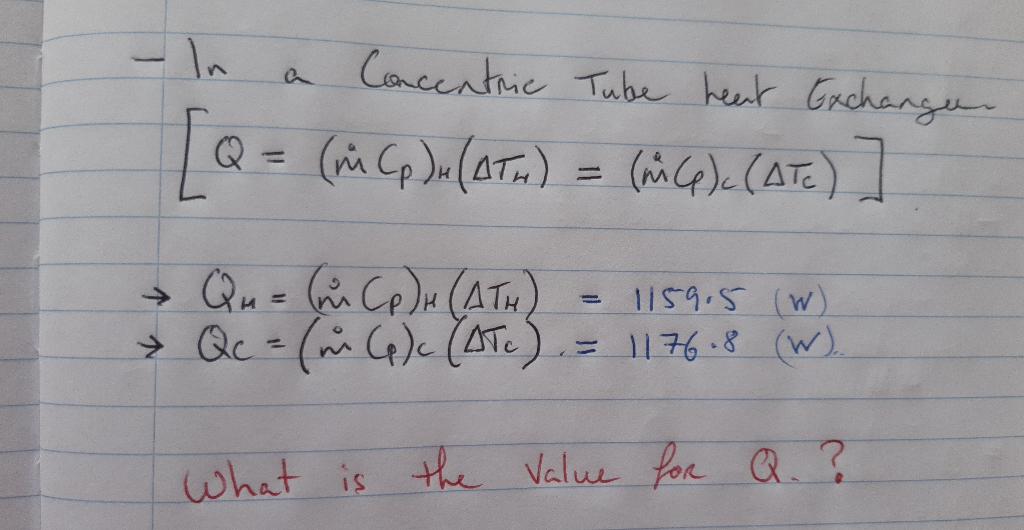 - In a Concentric Tube heat Exchanger
[Q = (ṁ Cp)H (ΔTH) = (ṁ Cp)C (ΔTC)]
→ QH = (ṁ Cp)H (ΔTH) = 1159.5 (W)
→ QC = (ṁ Cp)C (ΔTC) . = 1176.8 (W).
What is the Value for Q. ?